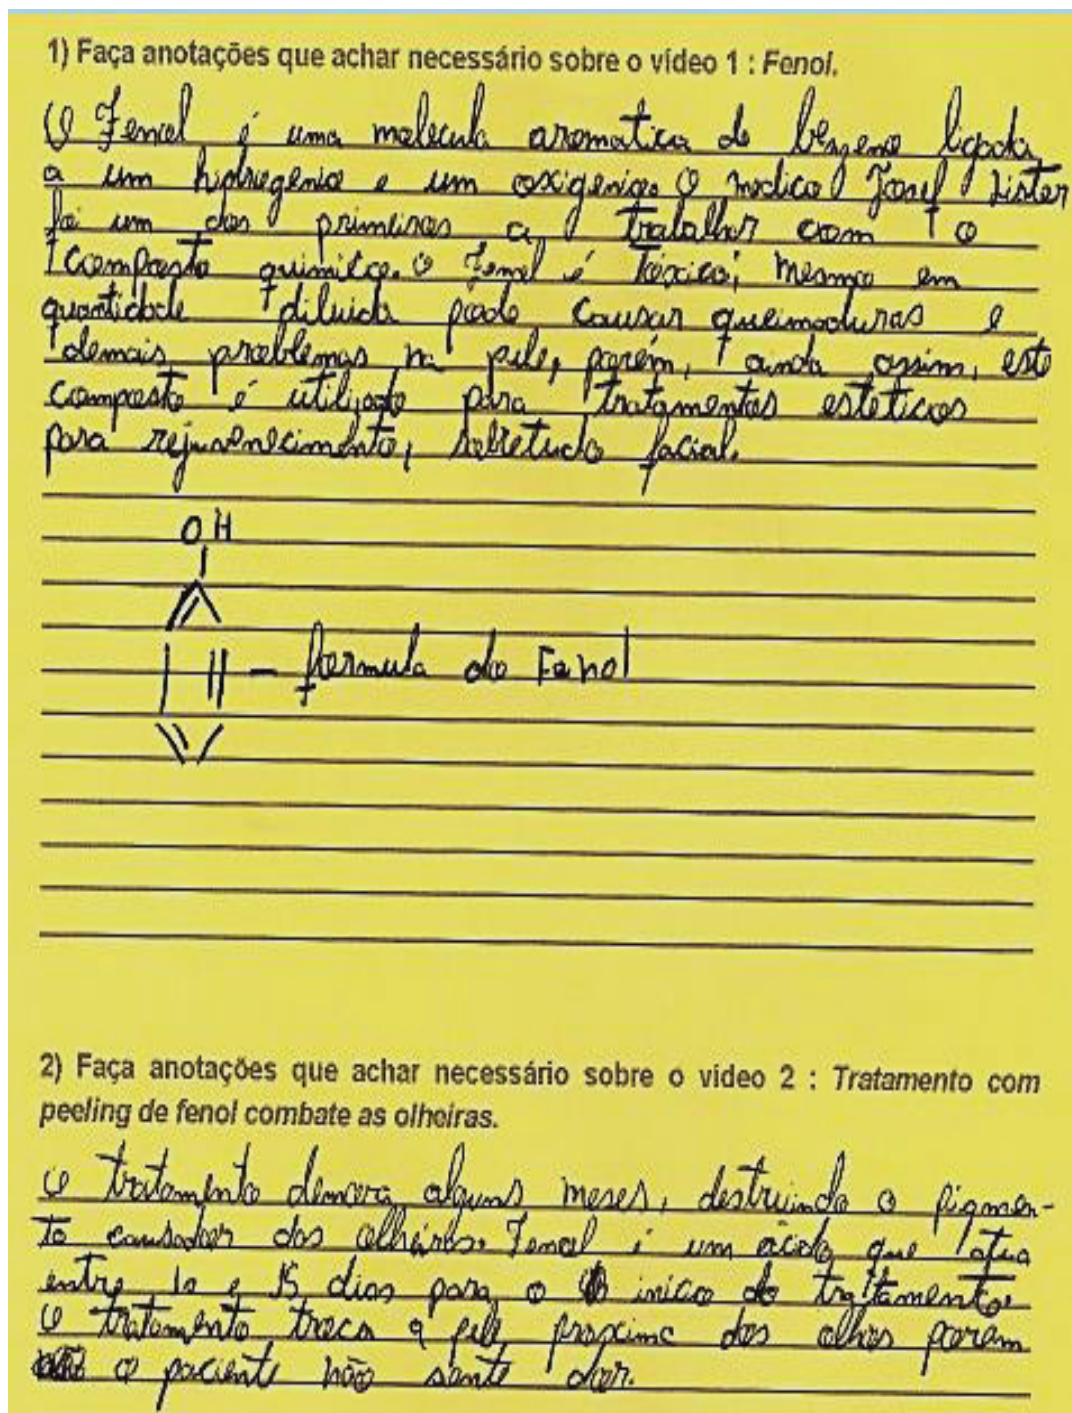 1) Faça anotações que achar necessário sobre o vídeo 1 : Fenol.
O Fenol é uma molecula aromatica de benzeno ligada
a um hidrogenio e um oxigenio. O medico Josef Lister
foi um dos primeiros a trabalhar com o
composto quimico. O Fenol é Tóxico, mesmo em
quantidade diluida pode causar queimaduras e
demais problemas na pele, porém, ainda assim, este
composto é utilizado para tratamentos esteticos
para rejuvenecimento, sobretudo facial.
OH
– formula do Fenol
2) Faça anotações que achar necessário sobre o vídeo 2 : Tratamento com
peeling de fenol combate as olheiras.
O tratamento demora alguns meses, destruindo o pigmen-
to causador das olheiras. Fenol é um ácido que atua
entre 10 e 15 dias para o inicio do tratamento.
O tratamento troca a pele proxima dos olhos porem
o paciente não sente dor.